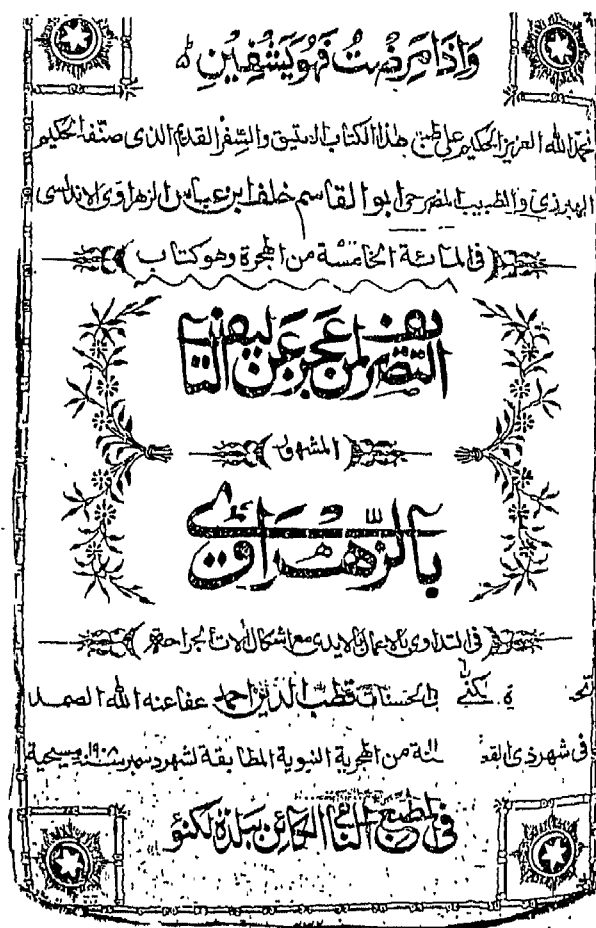 وَاِذَا مَرِضْتُ فَهُوَ يَشْفِيْنِ ط
نحمد الله العزيز الحكيم على طبع هذا الكتاب الانيق والسِّفر القديم الذى صنّفه الحكيم
الهبرزى والطبيب المضرحى ابو القاسم خلف ابن عباس الزهراوى الاندلسى
(فى المائة الخامسة من الهجرة وهو كتاب)
التصريف لمن عجز عن التاليف
(المشهور)
بالزّهراوىّ
(فى التداوى بالاعمال بالايدى مع اشكال آلات الجراحة)
الحسنات قطب الدين احمد عفا عنه الله الصمد
فى شهر ذى من الهجرية النبوية المطابقة لشهر دسمبر سنة ١٩٠٨ مسيحية
فى المطبع النامى الكائن ببلدة لكنؤ